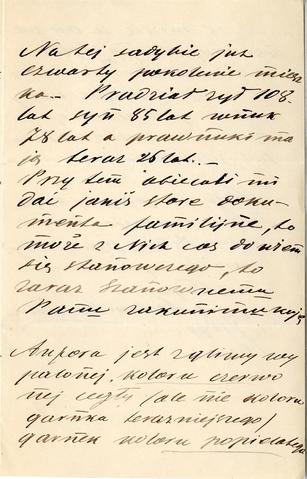 Na tej sadybie już
czwarty pokolenie miesz
ka. — Pradziad żył 108
lat syn 85 lat wnuk
78 lat a prawnuki ma
ją teraz 26 lat. —
Przytem obiecali mi
dać jakiś stare doku-
menta familijne, to
może z Nich coś dowiem
się stanowczego, to
zaraz Szanownemu
Panu zakomunikuję
Amfora jest z gliny wy
palonej, koloru czerwo
nej cegły /ale nie koloru
garnka teraźniejszego/
garnek koloru popielatego